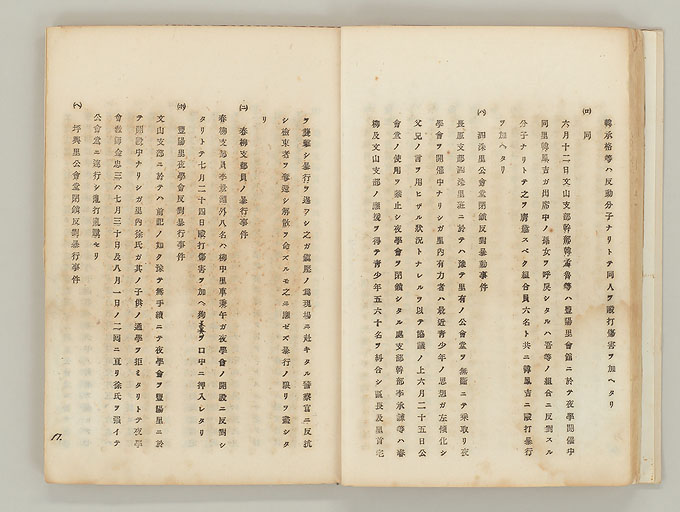 韓承格等ハ反動分子ナリトテ同人ヲ毆打傷害ヲ加ヘタリ
(ロ) 同
六月十二日文山支部幹部韓孟善等ハ豊陽里會館ニ於テ夜學開催中
同里韓鳳吉ガ出席中ノ孫女ヲ呼戻シタルハ吾等ノ組合ニ反對スル
分子ナリトテ之ヲ膺懲スベク組合員六名ト共ニ韓鳳吉ニ毆打暴行
ヲ加ヘタリ
(ハ) 泗洙里公會堂閉鎖反對暴動事件
長原支部泗洙里班ニ於テハ豫テ里有ノ公會堂ヲ無斷ニテ乘取リ夜
學會ヲ開催中ナリシガ里内有力者ハ最近青少年ノ思想ガ左傾化シ
父兄ノ言ヲ用ヒザル狀況トナレルヲ以テ協議ノ上六月二十五日公
會堂ノ使用ヲ禁止シ夜學會ヲ閉鎖シタル處支部幹部李承諄等ハ春
柳及文山支部ノ應援ヲ得テ青少年五六十名ヲ糾合シ區長及里首宅
ヲ襲撃シ暴行ヲ逞フシ之ガ鎭壓ノ爲現場ニ赴キタル警察官ニ反抗
シ檢束者ヲ奪還シ解散ヲ命ズルモ之ニ應ゼズ暴行ノ限リヲ盡シタ
リ
(ニ) 春柳支部員ノ暴行事件
春柳支部員李景 外八名ハ柳中里車 午ガ夜學會ノ開設ニ反對シ
タリトテ七月二十四日毆打傷害ヲ加ヘ狗 ヲ口中ニ押入レタリ
(ホ) 豊陽里夜學會反對暴行事件
文山支部ニ於テハ前記ノ如ク豫テ無手續ニテ夜學會ヲ豊陽里ニ於
テ開設中ナリシガ里内徐氏ガ其ノ子供ノ通學ヲ拒ミタリトテ夜學
會教師金忠三ハ七月三十日及八月一日ノ二回ニ亘リ徐氏ヲ强イテ
公會堂ニ連行シ亂打亂蹴セリ
(ヘ) 坪興里公會堂閉鎖反對暴行事件
17.